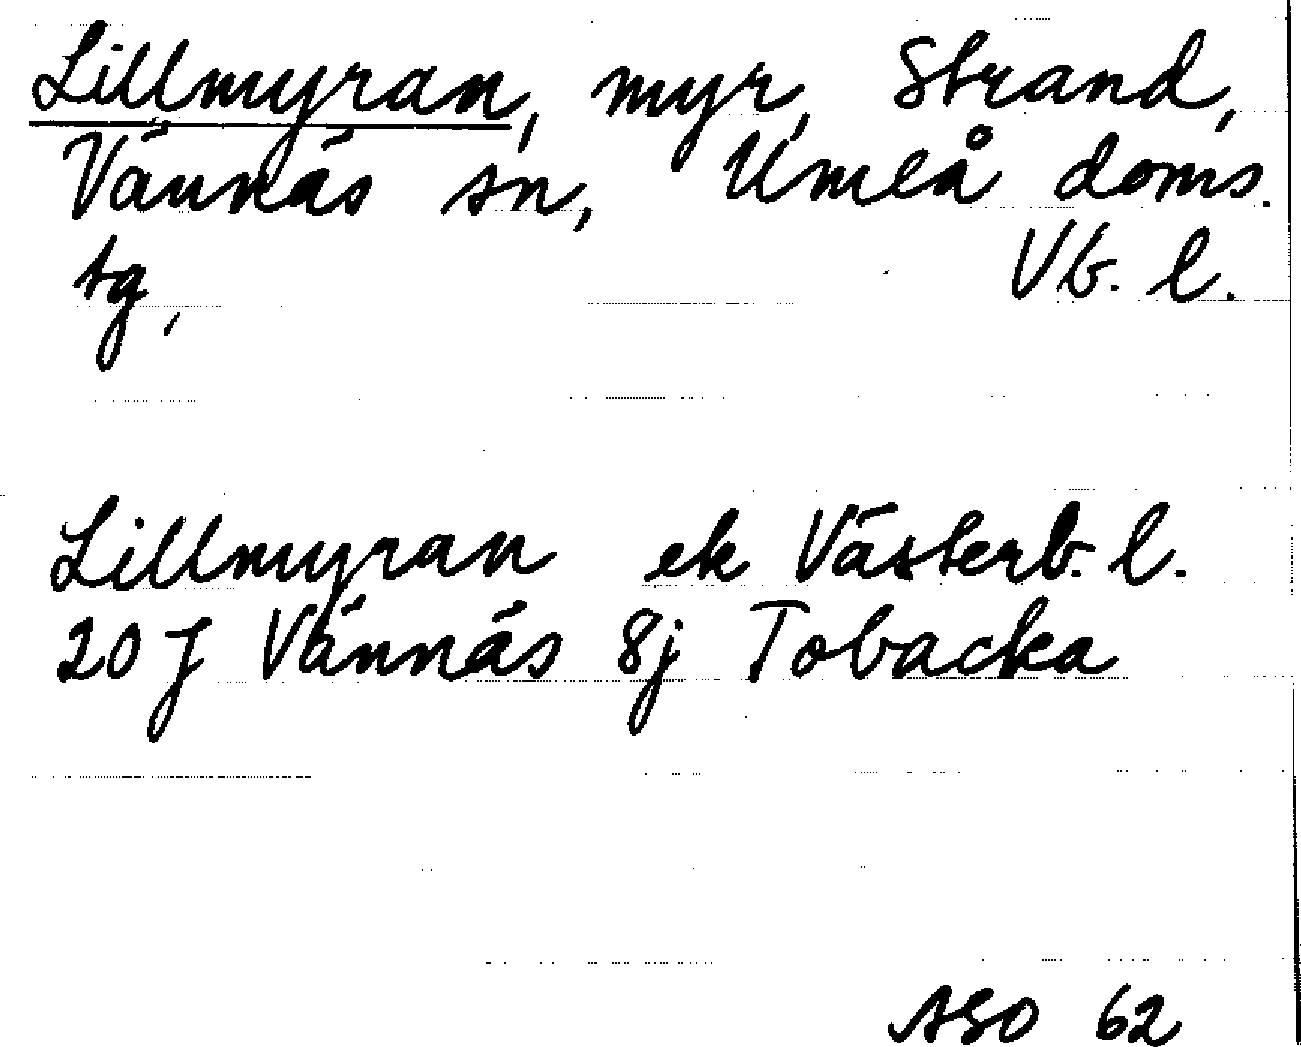 Lillmyran, myr, Strand,
Vännäs sn, Umeå doms.
tg, Vb. l.
Lillmyran ek Västerb. l.
20 J Vännäs 8j Tobacka
ASO 62